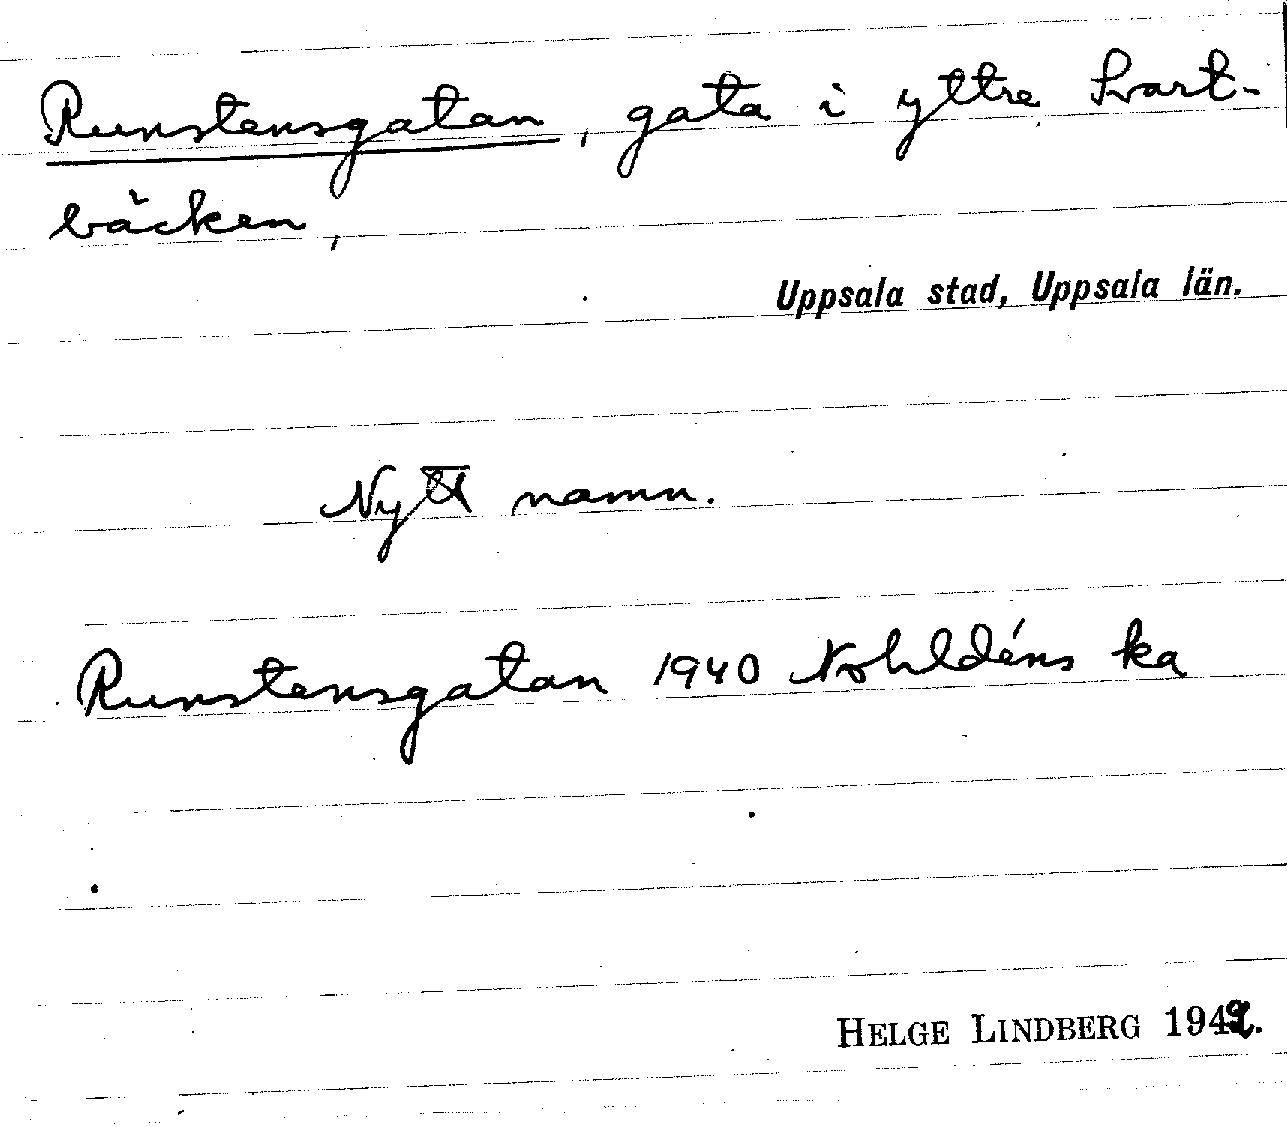 Runstensgatan, gata i yttre Svart-
bäcken,
Uppsala stad, Uppsala län.
Nytt namn.
Runstensgatan 1940 Nohldéns ka
HELGE LINDBERG 1942.